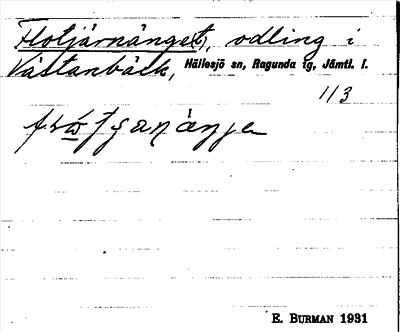 Flotjärnänge(t), odling i
Västanbäck, Hällesjö sn, Ragunda tg, Jämtl. l.
113
E. BURMAN 1931